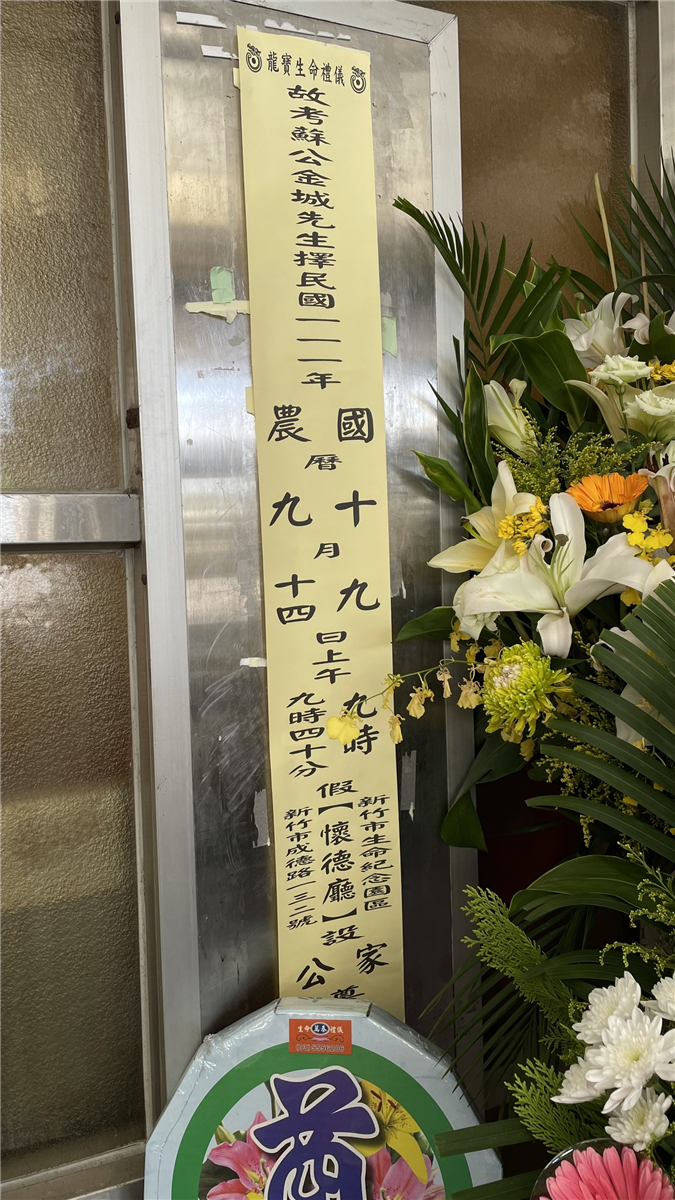 龍寶生命禮儀
故考蘇公金城先生擇民國一一一年
國
農
曆
十
九
月
九
十四
日上午
九時
九時四十分
假
新竹市生命紀念園區
【懷德廳】
新竹市成德路一三二號
設
家
公
奠
生命 萬泰 禮儀